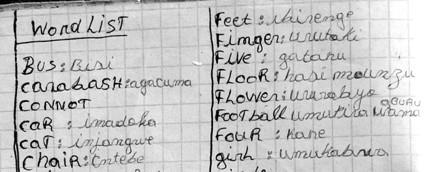 WORD LIST
BUS: Bisi
caRabaSH: agacuma
CONNOT
caR : imadoka
caT : injangwe
ChaiR: Entebe
Feet : ibirenge
Fimger: urutoki
Five : gatanu
FLOOR: hasi mounzu
FLower: ururabyo
FOOTball umupira wama
guRu
FOUR : Kane
girh : umukobwa